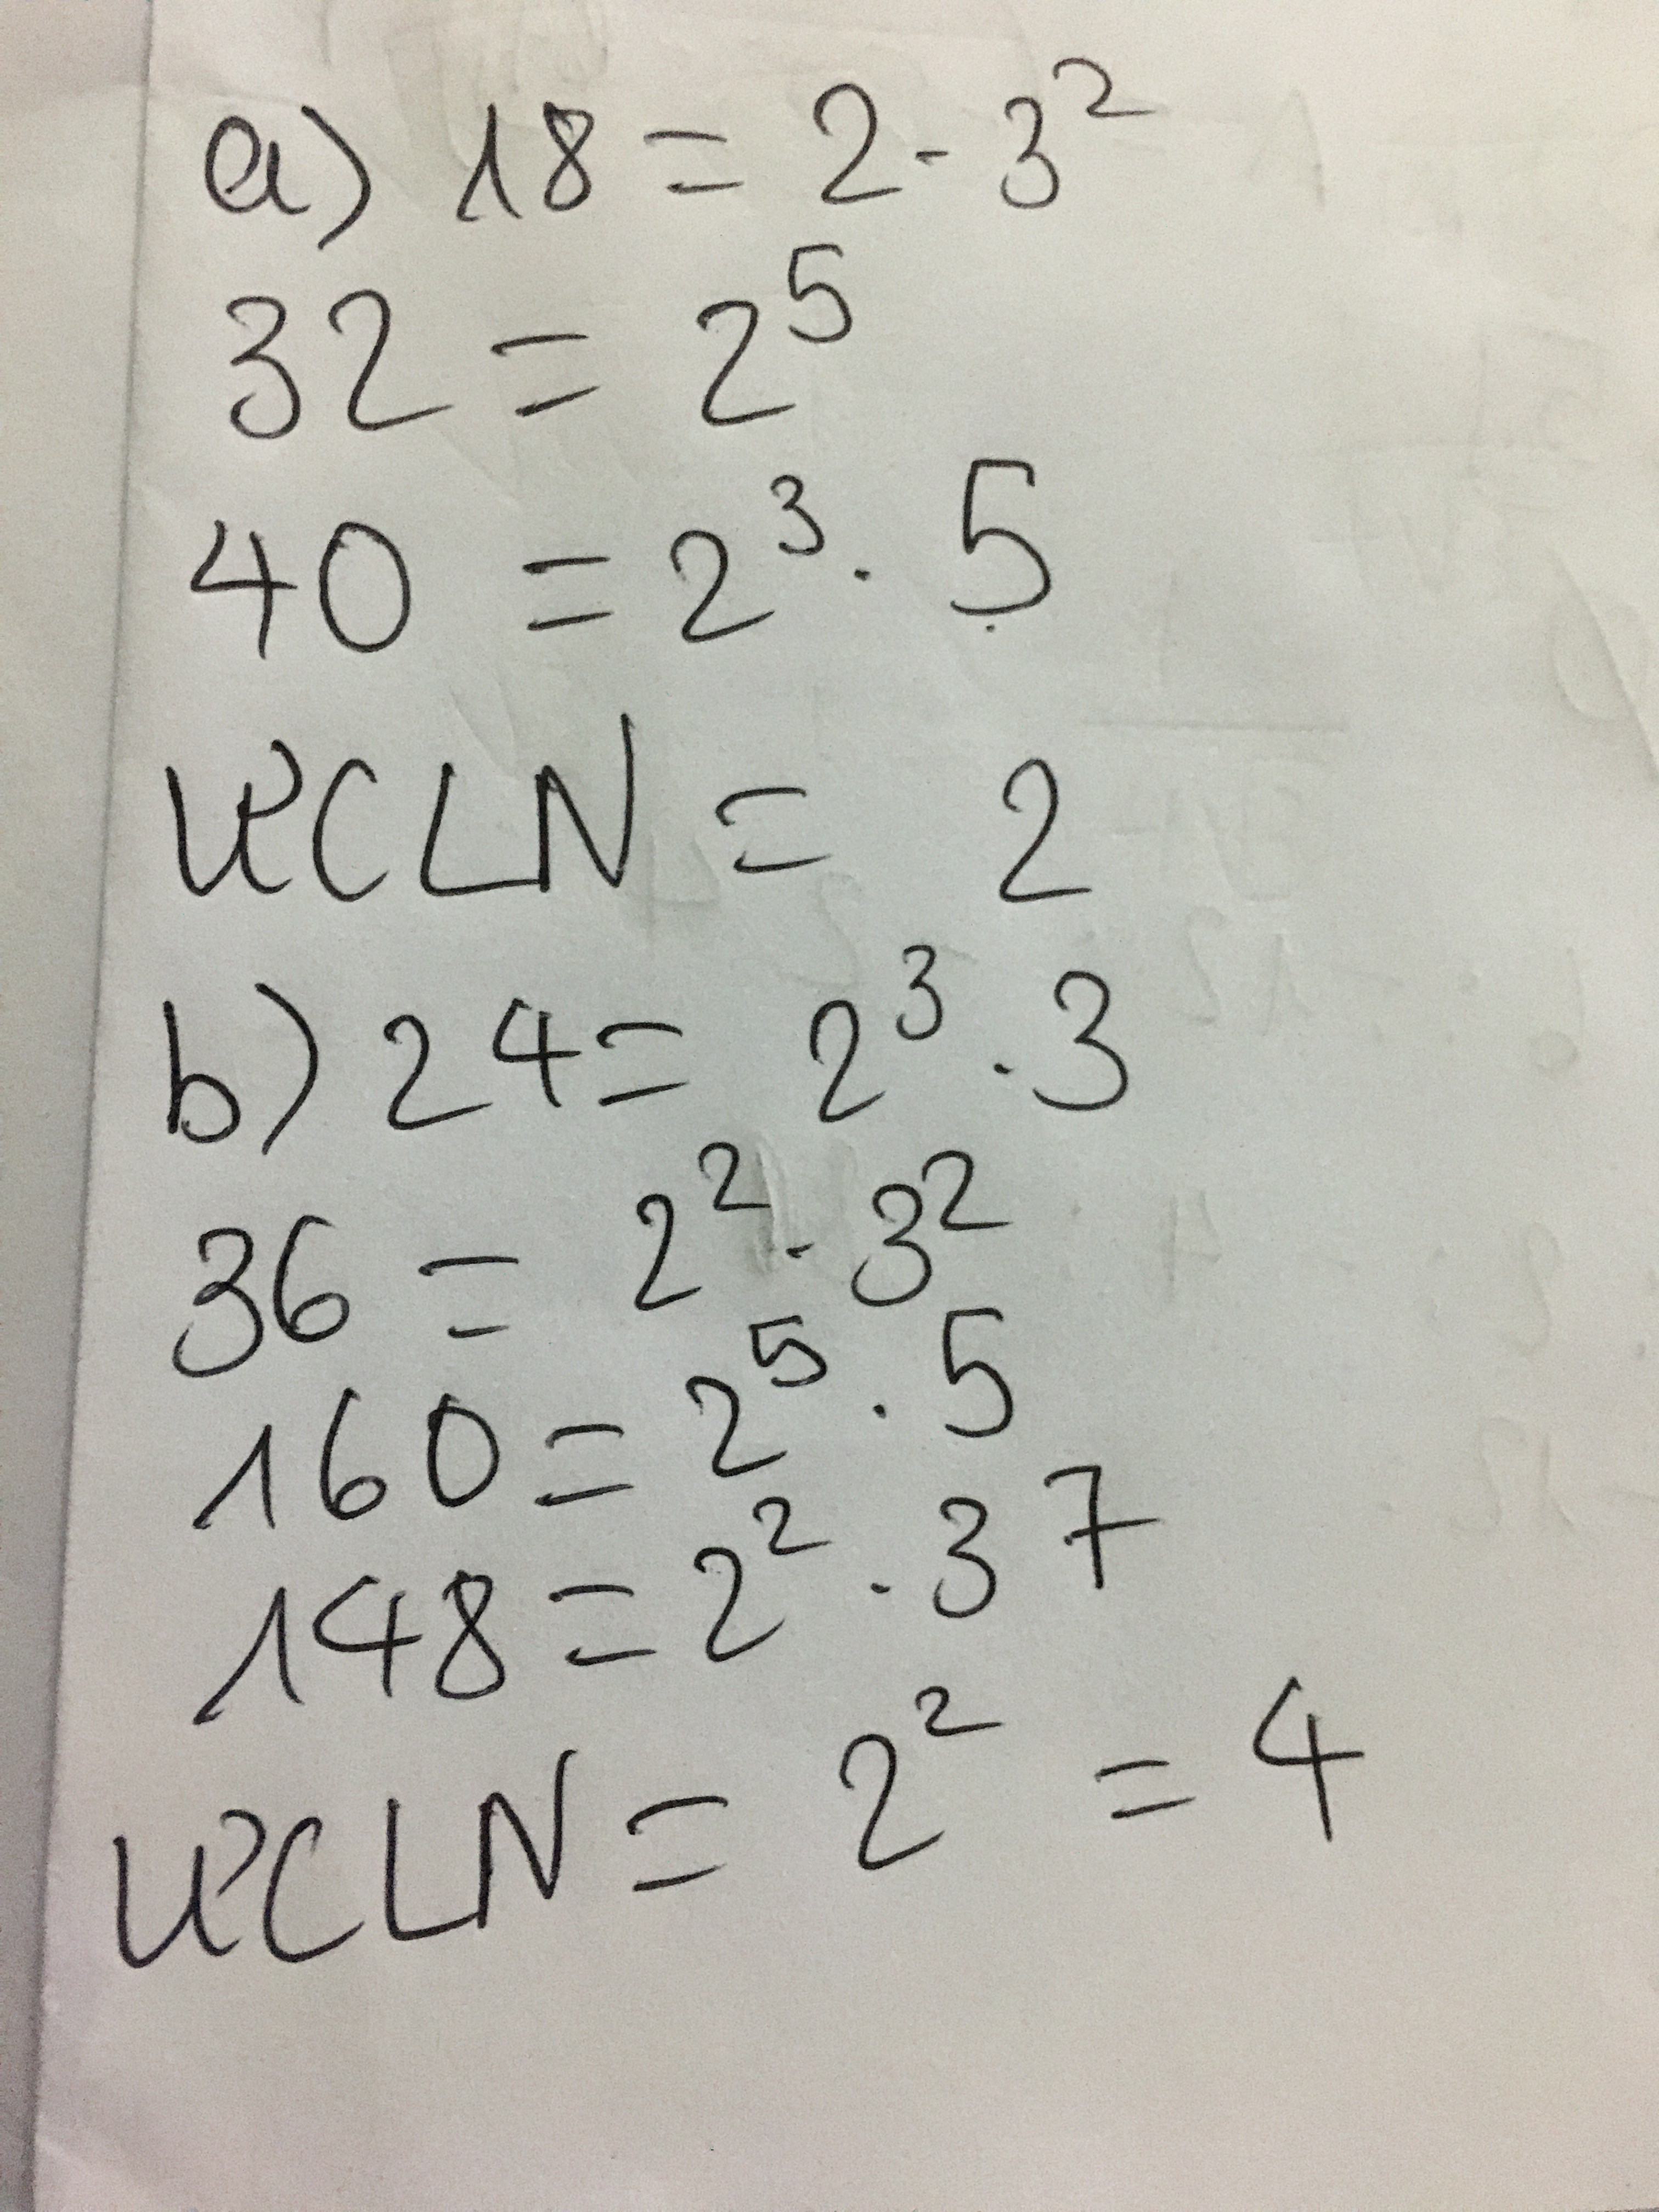 a) 18 = 2 . 3²
32 = 2⁵
40 = 2³ . 5
ƯCLN = 2
b) 24 = 2³ . 3
36 = 2² . 3²
160 = 2⁵ . 5
148 = 2² . 37
ƯCLN = 2² = 4